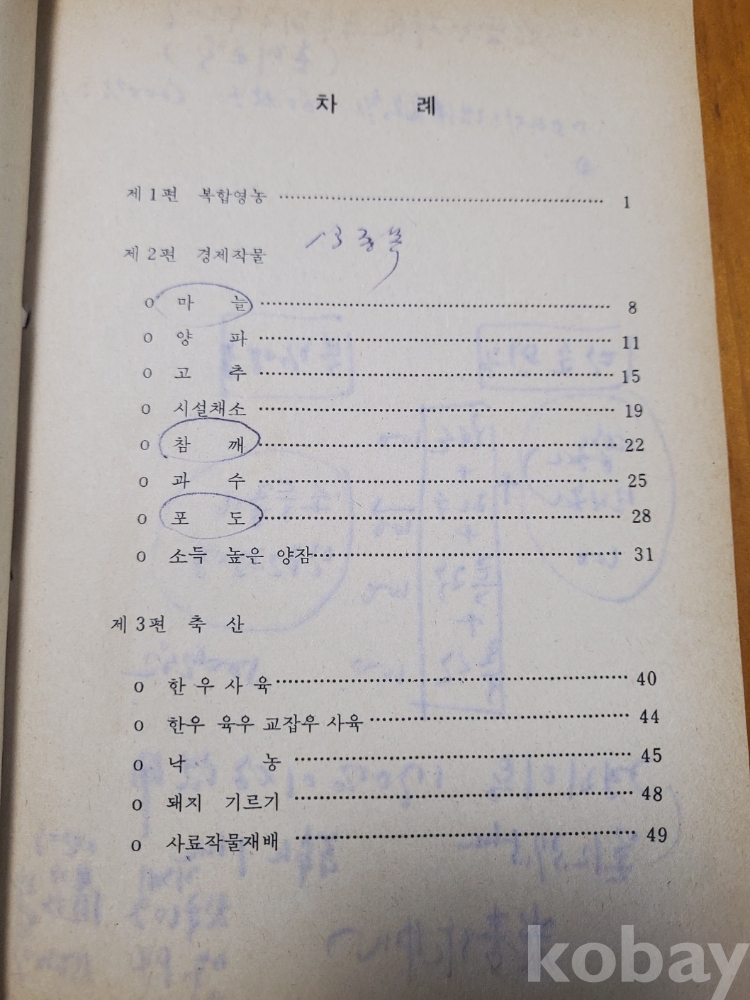 차 례
제1편 복합영농 ································ 1
제2편 경제작물
o 마 늘 ································ 8
o 양 파 ································ 11
o 고 추 ································ 15
o 시설채소 ································ 19
o 참 깨 ································ 22
o 과 수 ································ 25
o 포 도 ································ 28
o 소득 높은 양잠 ································ 31
제3편 축 산
o 한 우 사 육 ································ 40
o 한우 육우 교잡우 사육 ································ 44
o 낙 농 ································ 45
o 돼지 기르기 ································ 48
o 사료작물재배 ································ 49
kobay